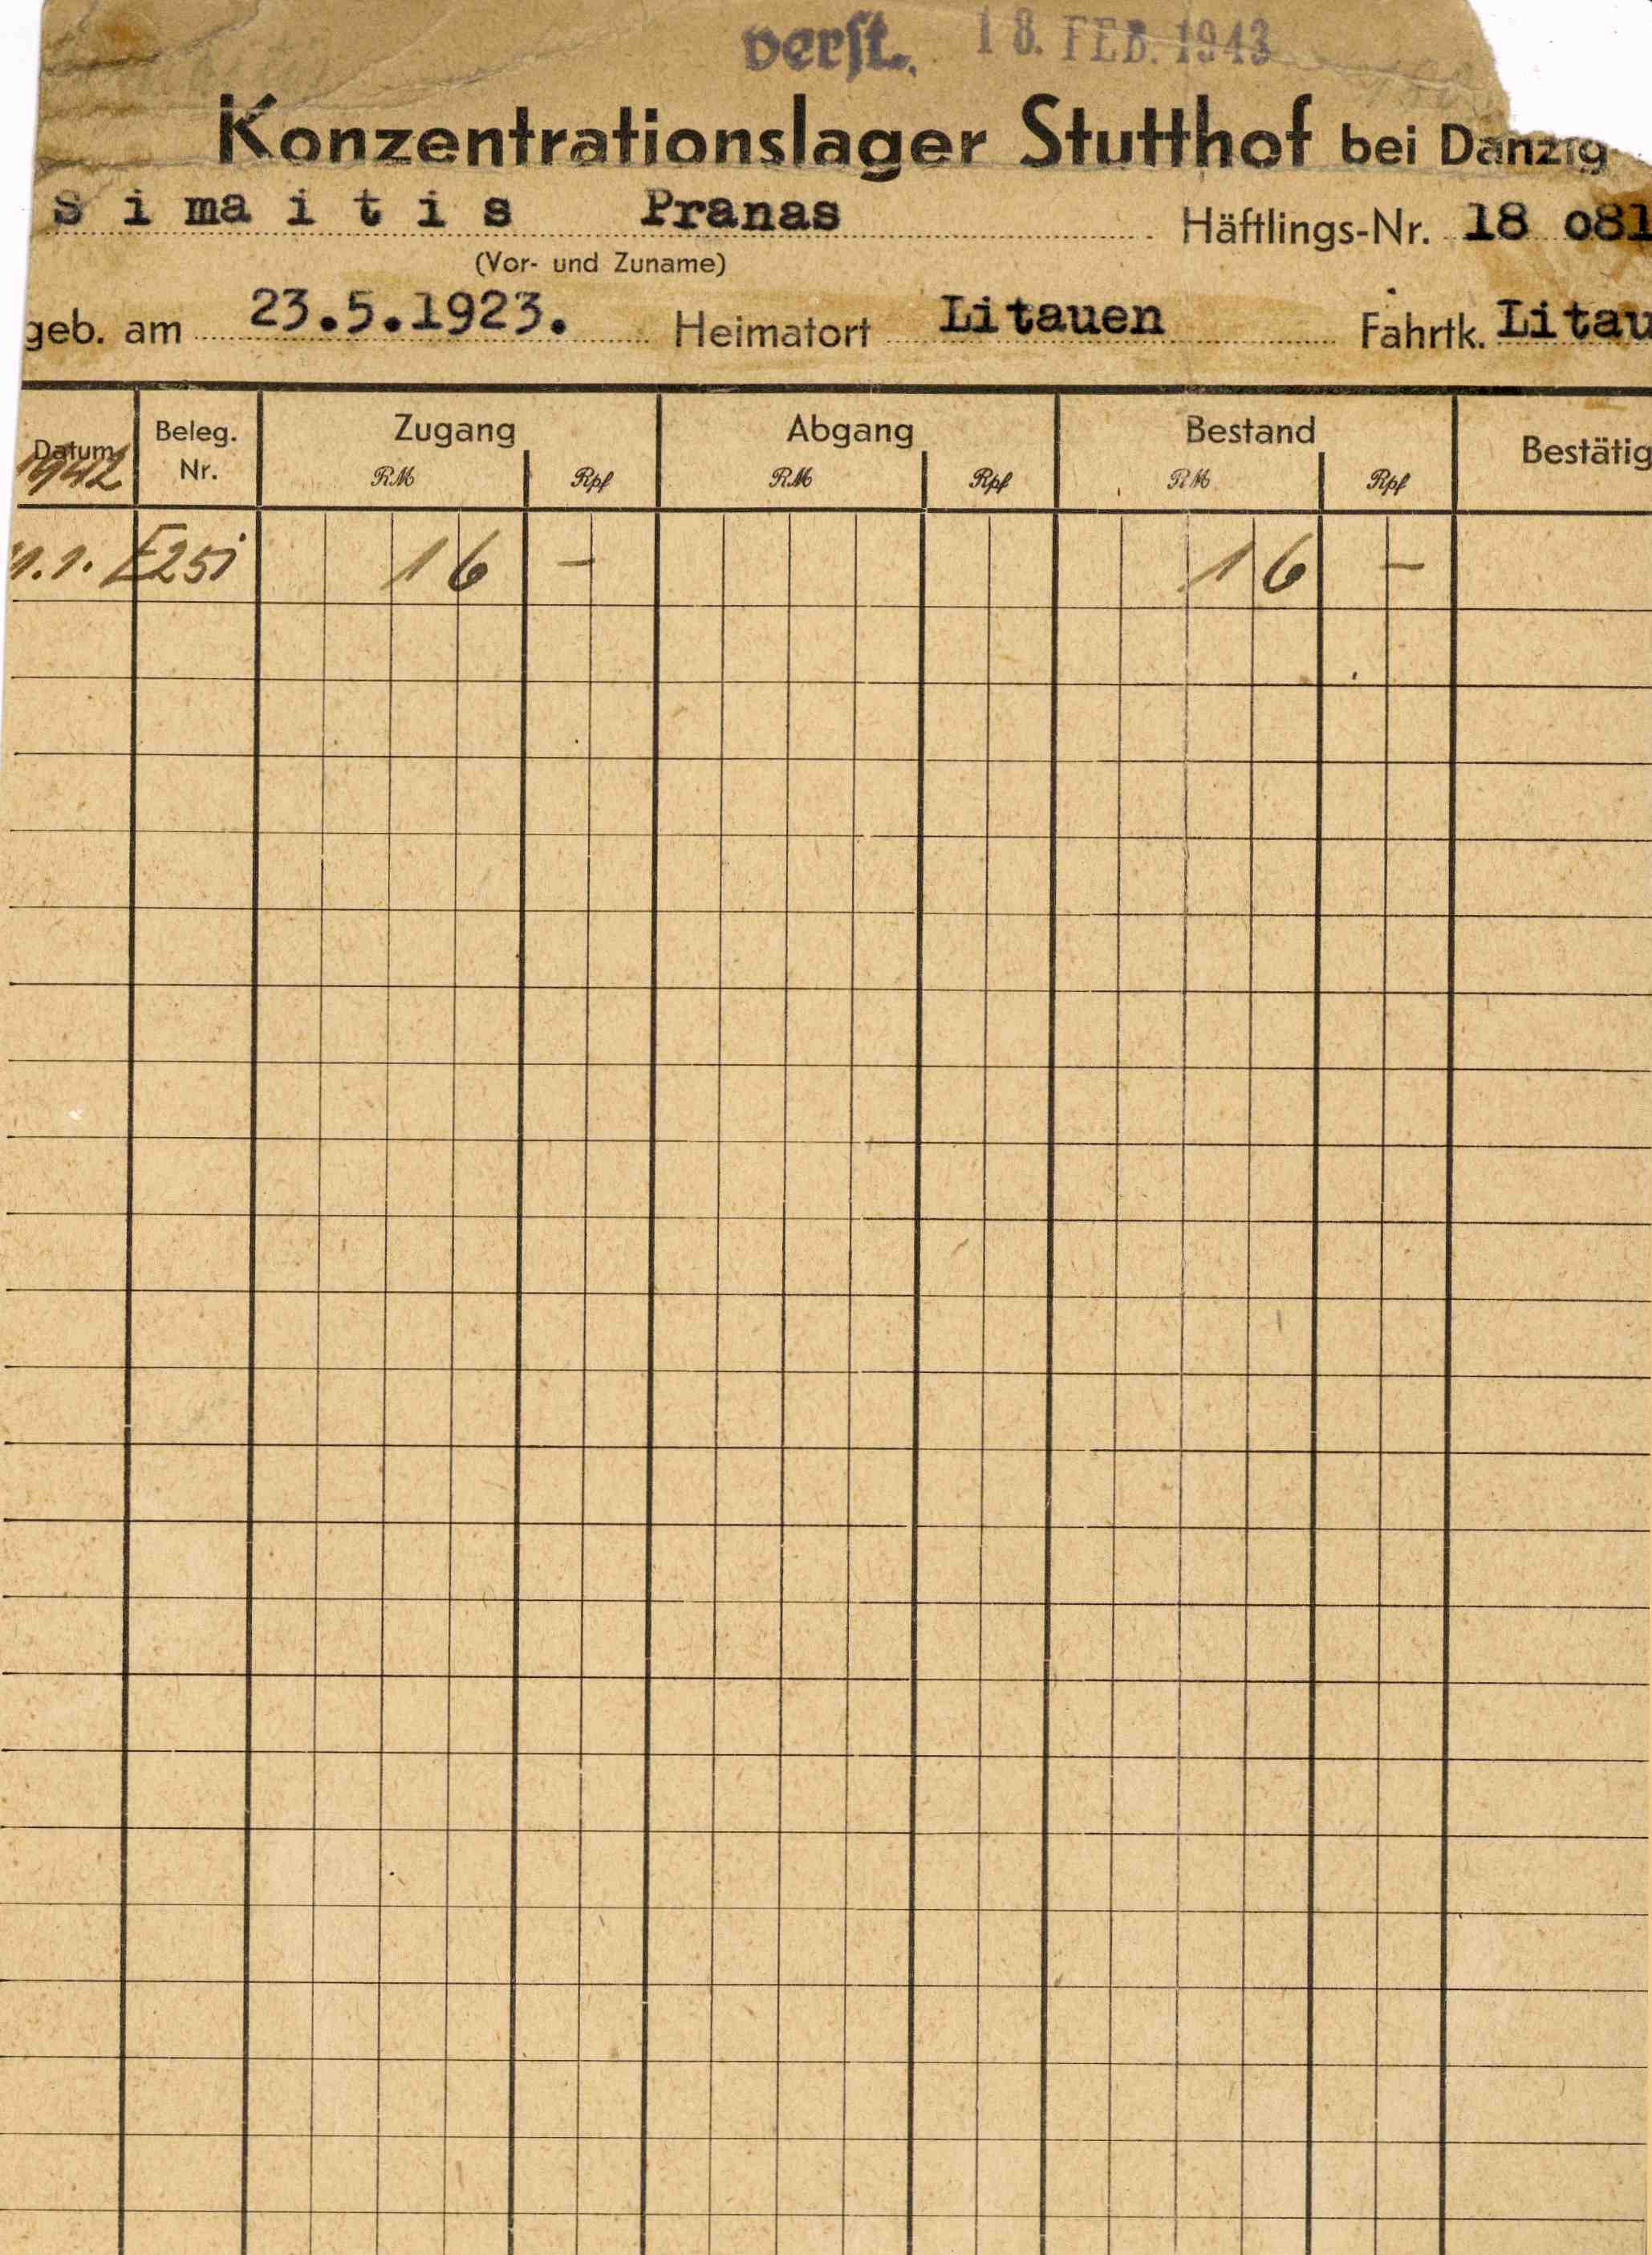 verst. 18. FEB. 1943
Konzentrationslager Stutthof bei Danzig
S i ma i t i s Pranas Häftlings-Nr. 18 081
(Vor- und Zuname)
geb. am 23.5.1923. Heimatort Litauen Fahrtk. Litau
Datum Beleg. Nr. Zugang Abgang Bestand Bestätig
1942 RM Rpf RM Rpf RM Rpf
1.1. E251 16 – 16 –